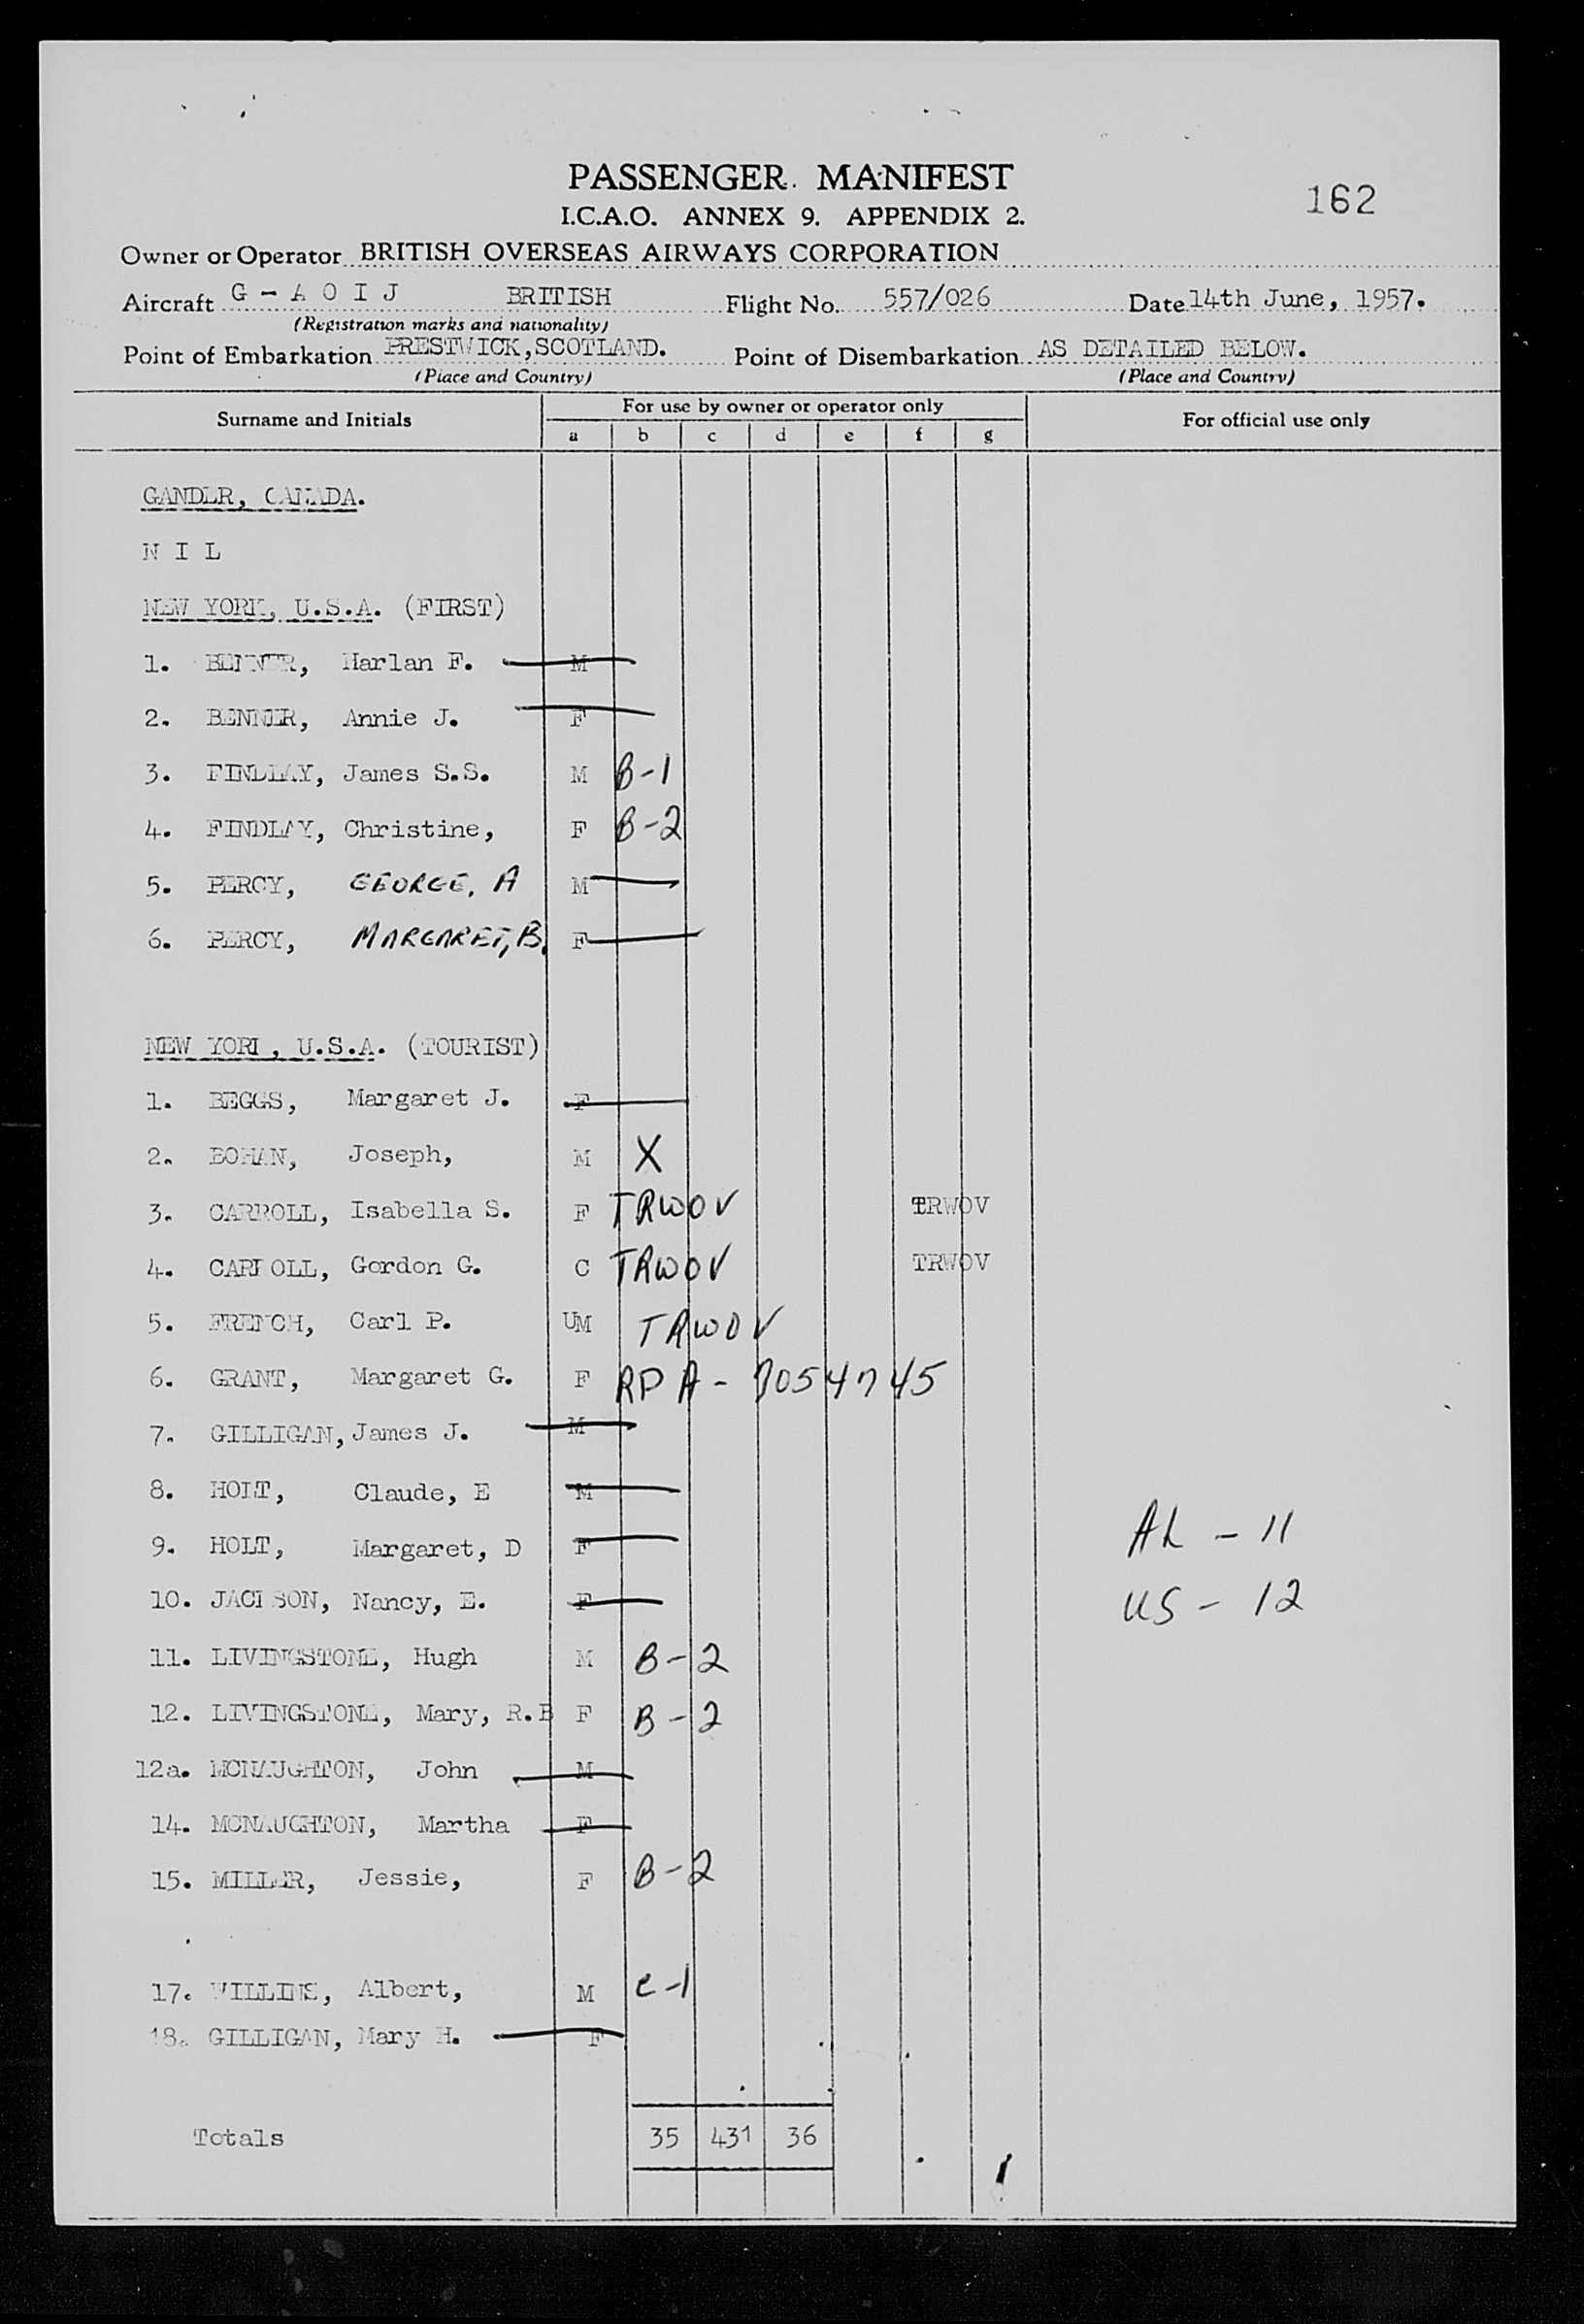 PASSENGER MANIFEST
162
I.C.A.O. ANNEX 9. APPENDIX 2.
Owner or Operator BRITISH OVERSEAS AIRWAYS CORPORATION
Aircraft G - A O I J BRITISH Flight No. 557/026 Date 14th June, 1957.
(Registration marks and nationality)
Point of Embarkation PRESTWICK, SCOTLAND. Point of Disembarkation AS DETAILED BELOW.
(Place and Country) (Place and Country)
Surname and Initials For use by owner or operator only For official use only
a b c d e f g
GANDER, CANADA.
N I L
NEW YORK, U.S.A. (FIRST)
1. BENNER, Harlan F. M
2. BENNER, Annie J. F
3. FINDLAY, James S.S. M B-1
4. FINDLAY, Christine, F B-2
5. PERCY, GEORGE, A M
6. PERCY, MARGARET, B. F
NEW YORK, U.S.A. (TOURIST)
1. BEGGS, Margaret J. F
2. BOHAN, Joseph, M X
3. CARROLL, Isabella S. F TRWOV TRWOV
4. CARROLL, Gordon G. C TRWOV TRWOV
5. FRENCH, Carl P. UM TRWOV
6. GRANT, Margaret G. F RP A - 7054745
7. GILLIGAN, James J. M
8. HOLT, Claude, E M
AL - 11
9. HOLT, Margaret, D F
10. JACKSON, Nancy, E. F
US - 12
11. LIVINGSTONE, Hugh M B-2
12. LIVINGSTONE, Mary, R.B F B-2
12a. MCNAUGHTON, John M
14. MCNAUGHTON, Martha F
15. MILLER, Jessie, F B-2
17. Albert, M C-1
18. GILLIGAN, Mary H. F
Totals 35 431 36